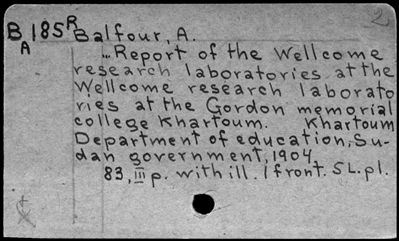 B 185R Balfour, A.
A
... Report of the Wellcome
research laboratories at the
Wellcome research laborato
ries at the Gordon memorial
college Khartoum. Khartoum
Department of education, Su-
dan government, 1904
83, III p. with ill. 1 front. 5 L. pl.